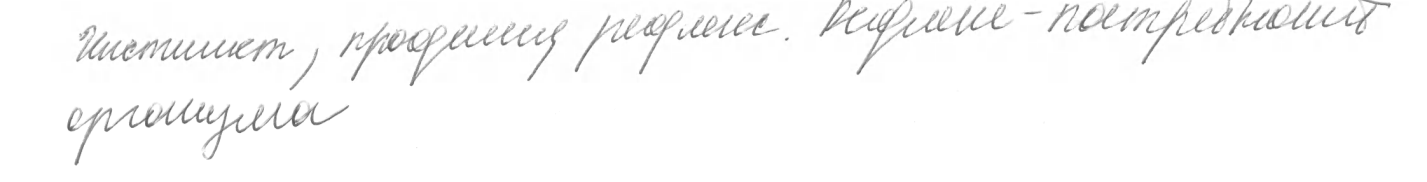 Инстинкт, продукция рефлекс. Рефлекс - потребность
организма